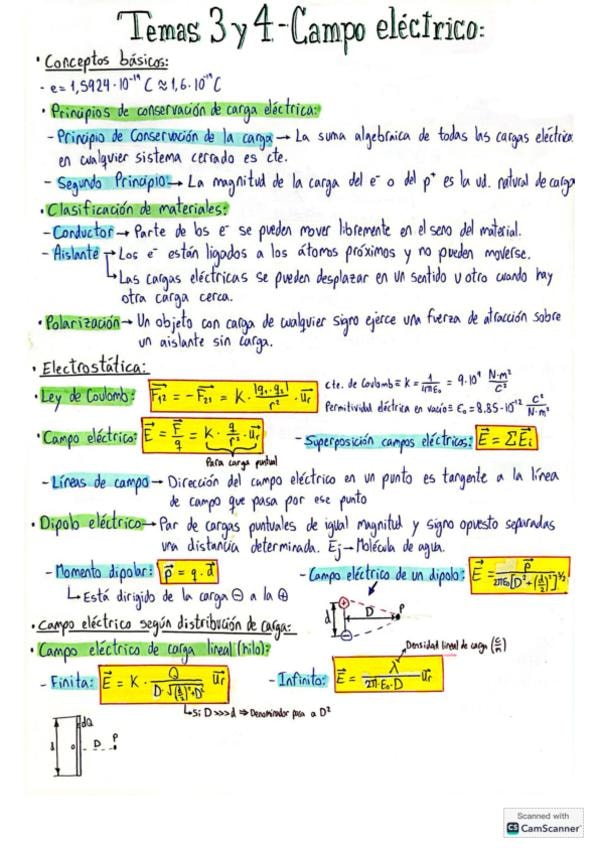 Temas 3 y 4 - Campo eléctrico:
· Conceptos básicos:
- e = 1,5924·10⁻¹⁹ C ≈ 1,6·10⁻¹⁹ C
· Principios de conservación de carga eléctrica:
- Principio de Conservación de la carga → La suma algebraica de todas las cargas eléctricas
en cualquier sistema cerrado es cte.
- Segundo Principio: → La magnitud de la carga del e⁻ o del p⁺ es la ud. natural de carga
· Clasificación de materiales:
- Conductor → Parte de los e⁻ se pueden mover libremente en el seno del material.
- Aislante → Los e⁻ están ligados a los átomos próximos y no pueden moverse.
↳ Las cargas eléctricas se pueden desplazar en un sentido u otro cuando hay
otra carga cerca.
· Polarización → Un objeto con carga de cualquier signo ejerce una fuerza de atracción sobre
un aislante sin carga.
· Electrostática:
· Ley de Coulomb: F₁₂ = - F₂₁ = K · |q₁·q₂| / r² · ur
cte. de Coulomb ≡ K = 1/4πε₀ = 9·10⁹ N·m²/C²
Permitividad eléctrica en vacío ≡ ε₀ = 8.85·10⁻¹² C²/N·m²
· Campo eléctrico: E = F/q = K · q/r² · ur
Para carga puntual
- Superposición campos eléctricos: E = ΣEi
- Líneas de campo → Dirección del campo eléctrico en un punto es tangente a la línea
de campo que pasa por ese punto
· Dipolo eléctrico → Par de cargas puntuales de igual magnitud y signo opuesto separadas
una distancia determinada. Ej → Molécula de agua.
- Momento dipolar: p = q · d
- Campo eléctrico de un dipolo: E = p / 2πε₀[D² + (d/2)²]^3/2
↳ Está dirigido de la carga ⊖ a la ⊕
d D P
· Campo eléctrico según distribución de carga:
· Campo eléctrico de carga lineal (hilo):
Densidad lineal de carga (C/m)
- Finita: E = K · Q / D·√((d/2)²+D²) ur
- Infinito: E = λ / 2π·ε₀·D · ur
↳ Si D >>> d ⇒ Denominador pasa a D²
dQ
d o D P
Scanned with
CS CamScanner